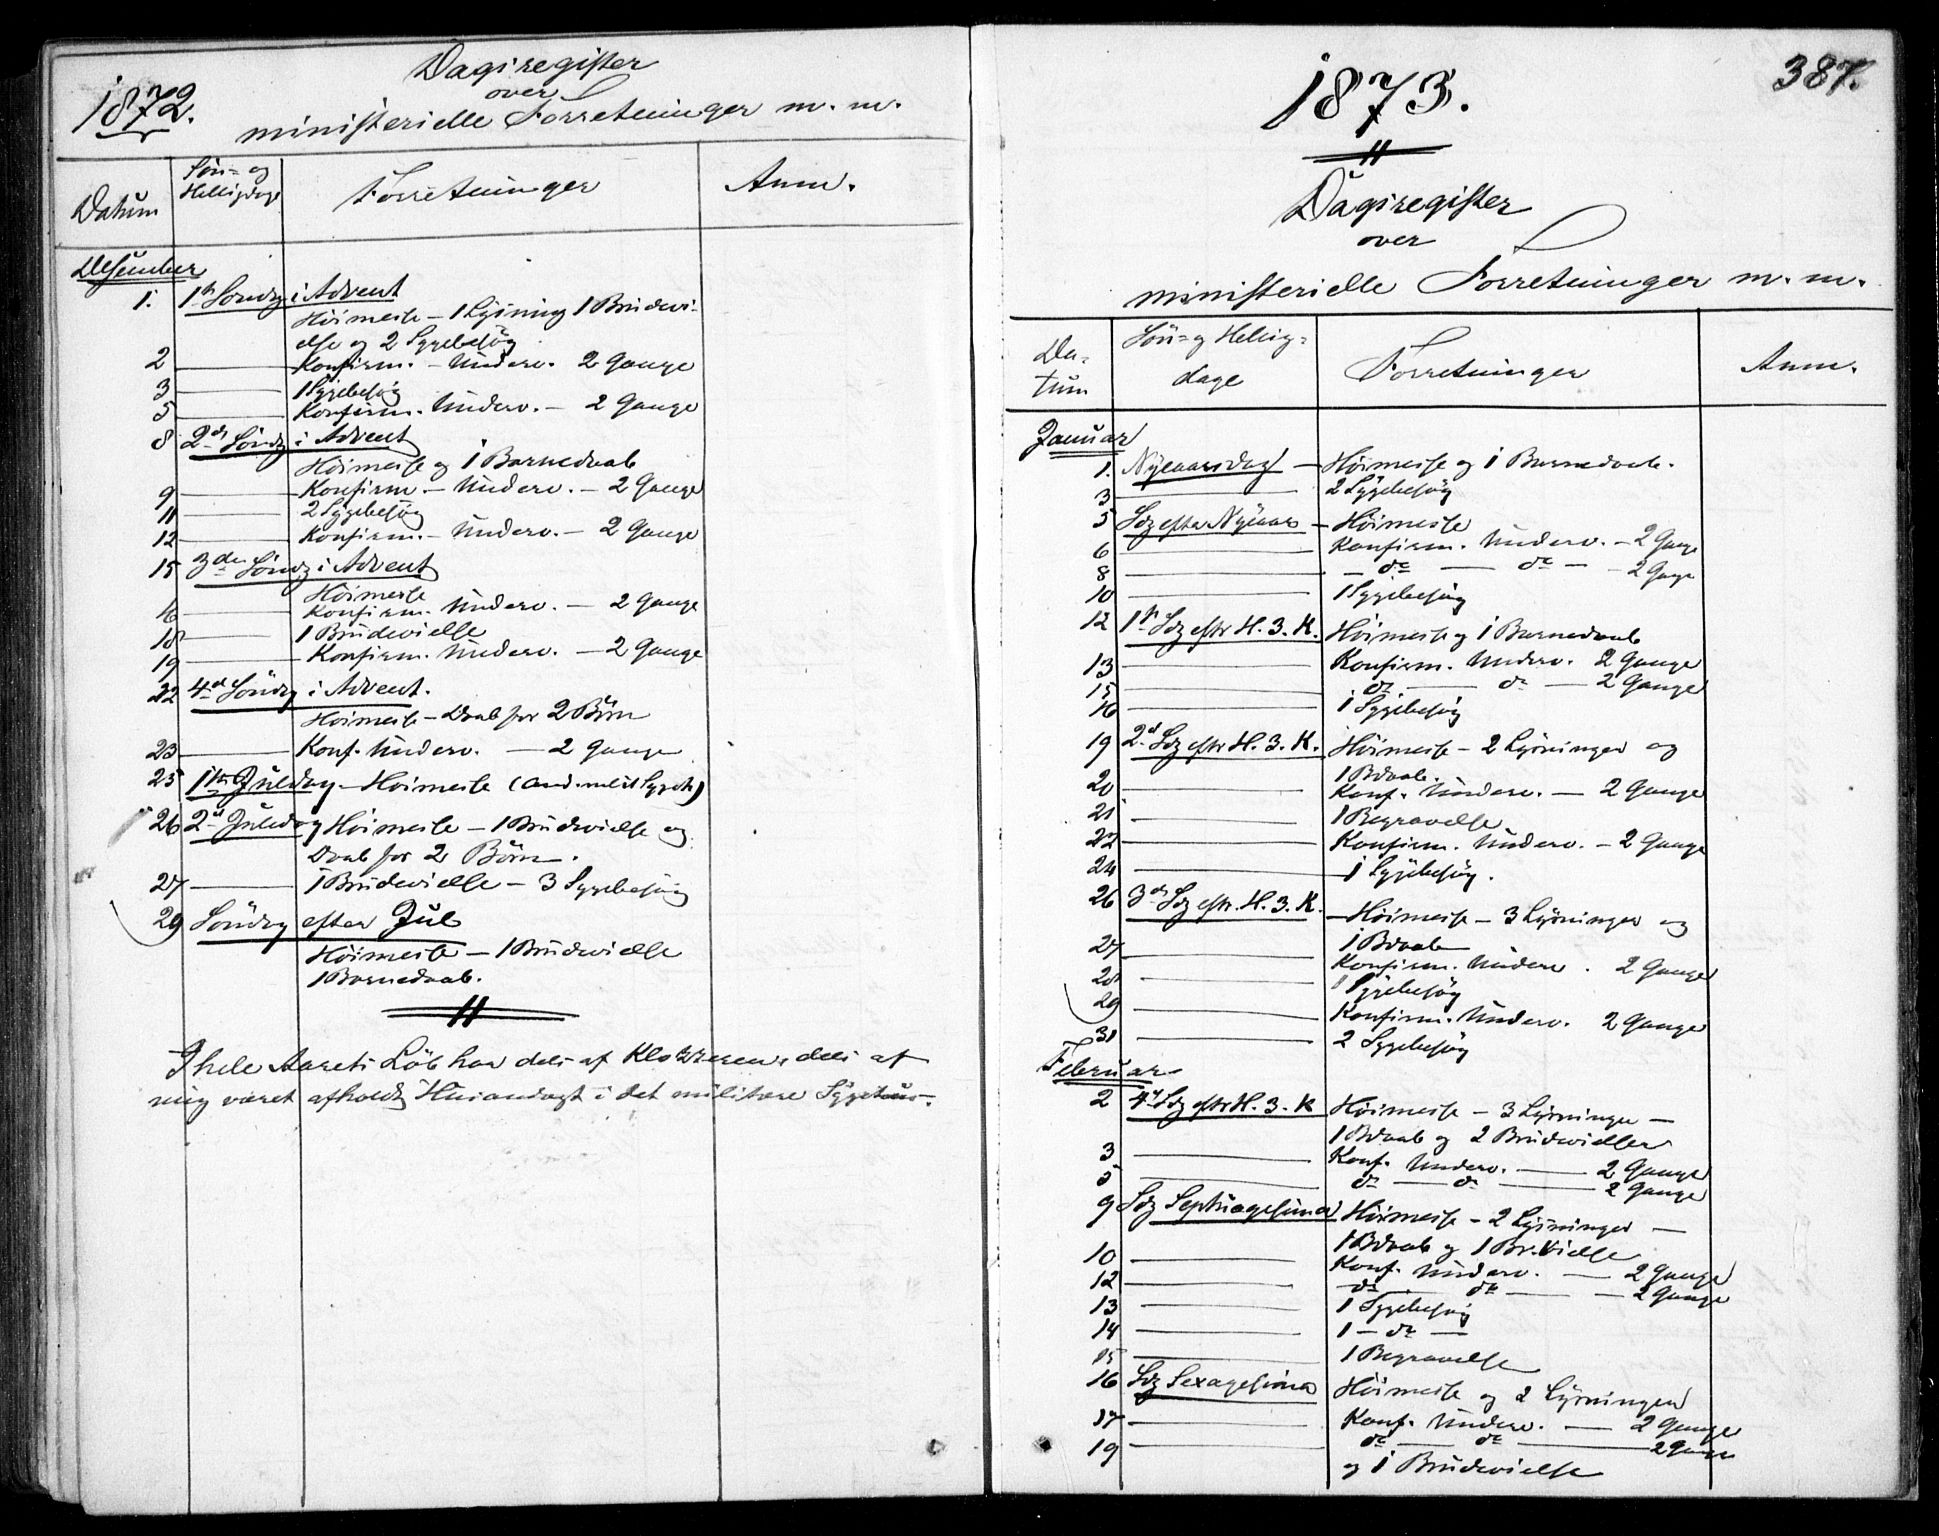 1872.
Dagsregister
over
ministerielle Forretninger m. m.
Datum
Søn- og
Helligdage
Forretninger
Anm.
Desember
1. 1ste Søndag i Advent
Höimesse – 1 Lysning 1 Brudevi-
else og 2 Sygebesög
2 Konfirm. – Underv. 2 Gange
3 1 Sygebesög
5 Konfirm. Underv. – 2 Gange
8 2den Søndag i Advent
Höimesse og 1 Barnedaab
9 Konfirm. – Underv. – 2 Gange
11 2 Sygebesög
12 Konfirm. – Underv. – 2 Gange
15 3die Søndg i Advent
Höimesse
16 Konfirm. Underv. – 2 Gange
18 1 Brudevielse
19 Konfirm. Underv. – 2 Gange
22 4de Söndg i Advent.
Höimesse – Daab for 2 Börn
23 Konf. Underv. – 2 Gange
25 1ste Juledag – Höimesse (And. milit Sygeh)
26 2d Juledag Höimesse – 1 Brudevielse og
Daab for 2 Börn.
27 1 Brudevielse – 3 Sygebesög
29 Söndag efter Jul
Höimesse – 1 Brudevielse
1 Barnedaab.
I hele Aarets Löb har dels af Klokkeren, dels af
mig været afholdt Husandagt i det militære Sygehus.
387.
1873.
Dagsregister
over
ministerielle Forretninger m. m.
Da-
tum
Sön- og Hellig-
dage
Forretninger
Anm.
Januar
1. Nytaarsdag – Höimesse og 1 Barnedaab.
3 2 Sygebesög
5 Sdg efter Nytaar – Höimesse
6 Konfirm. Underv. – 2 Gange
8 – do – do – 2 Gange
10 1 Sygebesög
12 1ste Sdg eftr H. 3. K. Höimesse og 1 Barnedaab
13 Konfirm. Underv. 2 Gange
15 do – do – 2 Gange
16 1 Sygebesög
19 2d Sdg eftr H. 3. K. Höimesse – 2 Lysninger og
1 Bdaab.
20 Konf. Underv. – 2 Gange
21 1 Begravelse
22 Konfirm. Underv. – 2 Gange
24 1 Sygebesög.
26 3die Sdg eftr. H. 3. K. – Höimesse – 3 Lysninger og
1 Bdaab
27 Konfirm. Underv. 2 Gange
28 1 Sygebesög
29 Konfirm. Underv. 2 Gange
31 2 Sygebesög
Februar
2 4d Sdg eftr H. 3. K Höimesse – 3 Lysninger –
1 Bdaab og 2 Brudevielser
3 Konf. Underv. – 2 Gange
5 do – do – 2 Gange
9 Sdg Septuagesima Höimesse – 2 Lysninger –
1 Bdaab og 1 Br.Vielse
10 Konf. Underv. – 2 Gange
12 do – do – 2 Gange
13 1 Sygebesög
14 1 – do –
15 1 Begravelse
16 Sdg Sexagesima Höimesse og 2 Lysninger
17 Konf. Underv. – 2 Gange
19 do – do – 2 Gange
og 1 Brudevielse